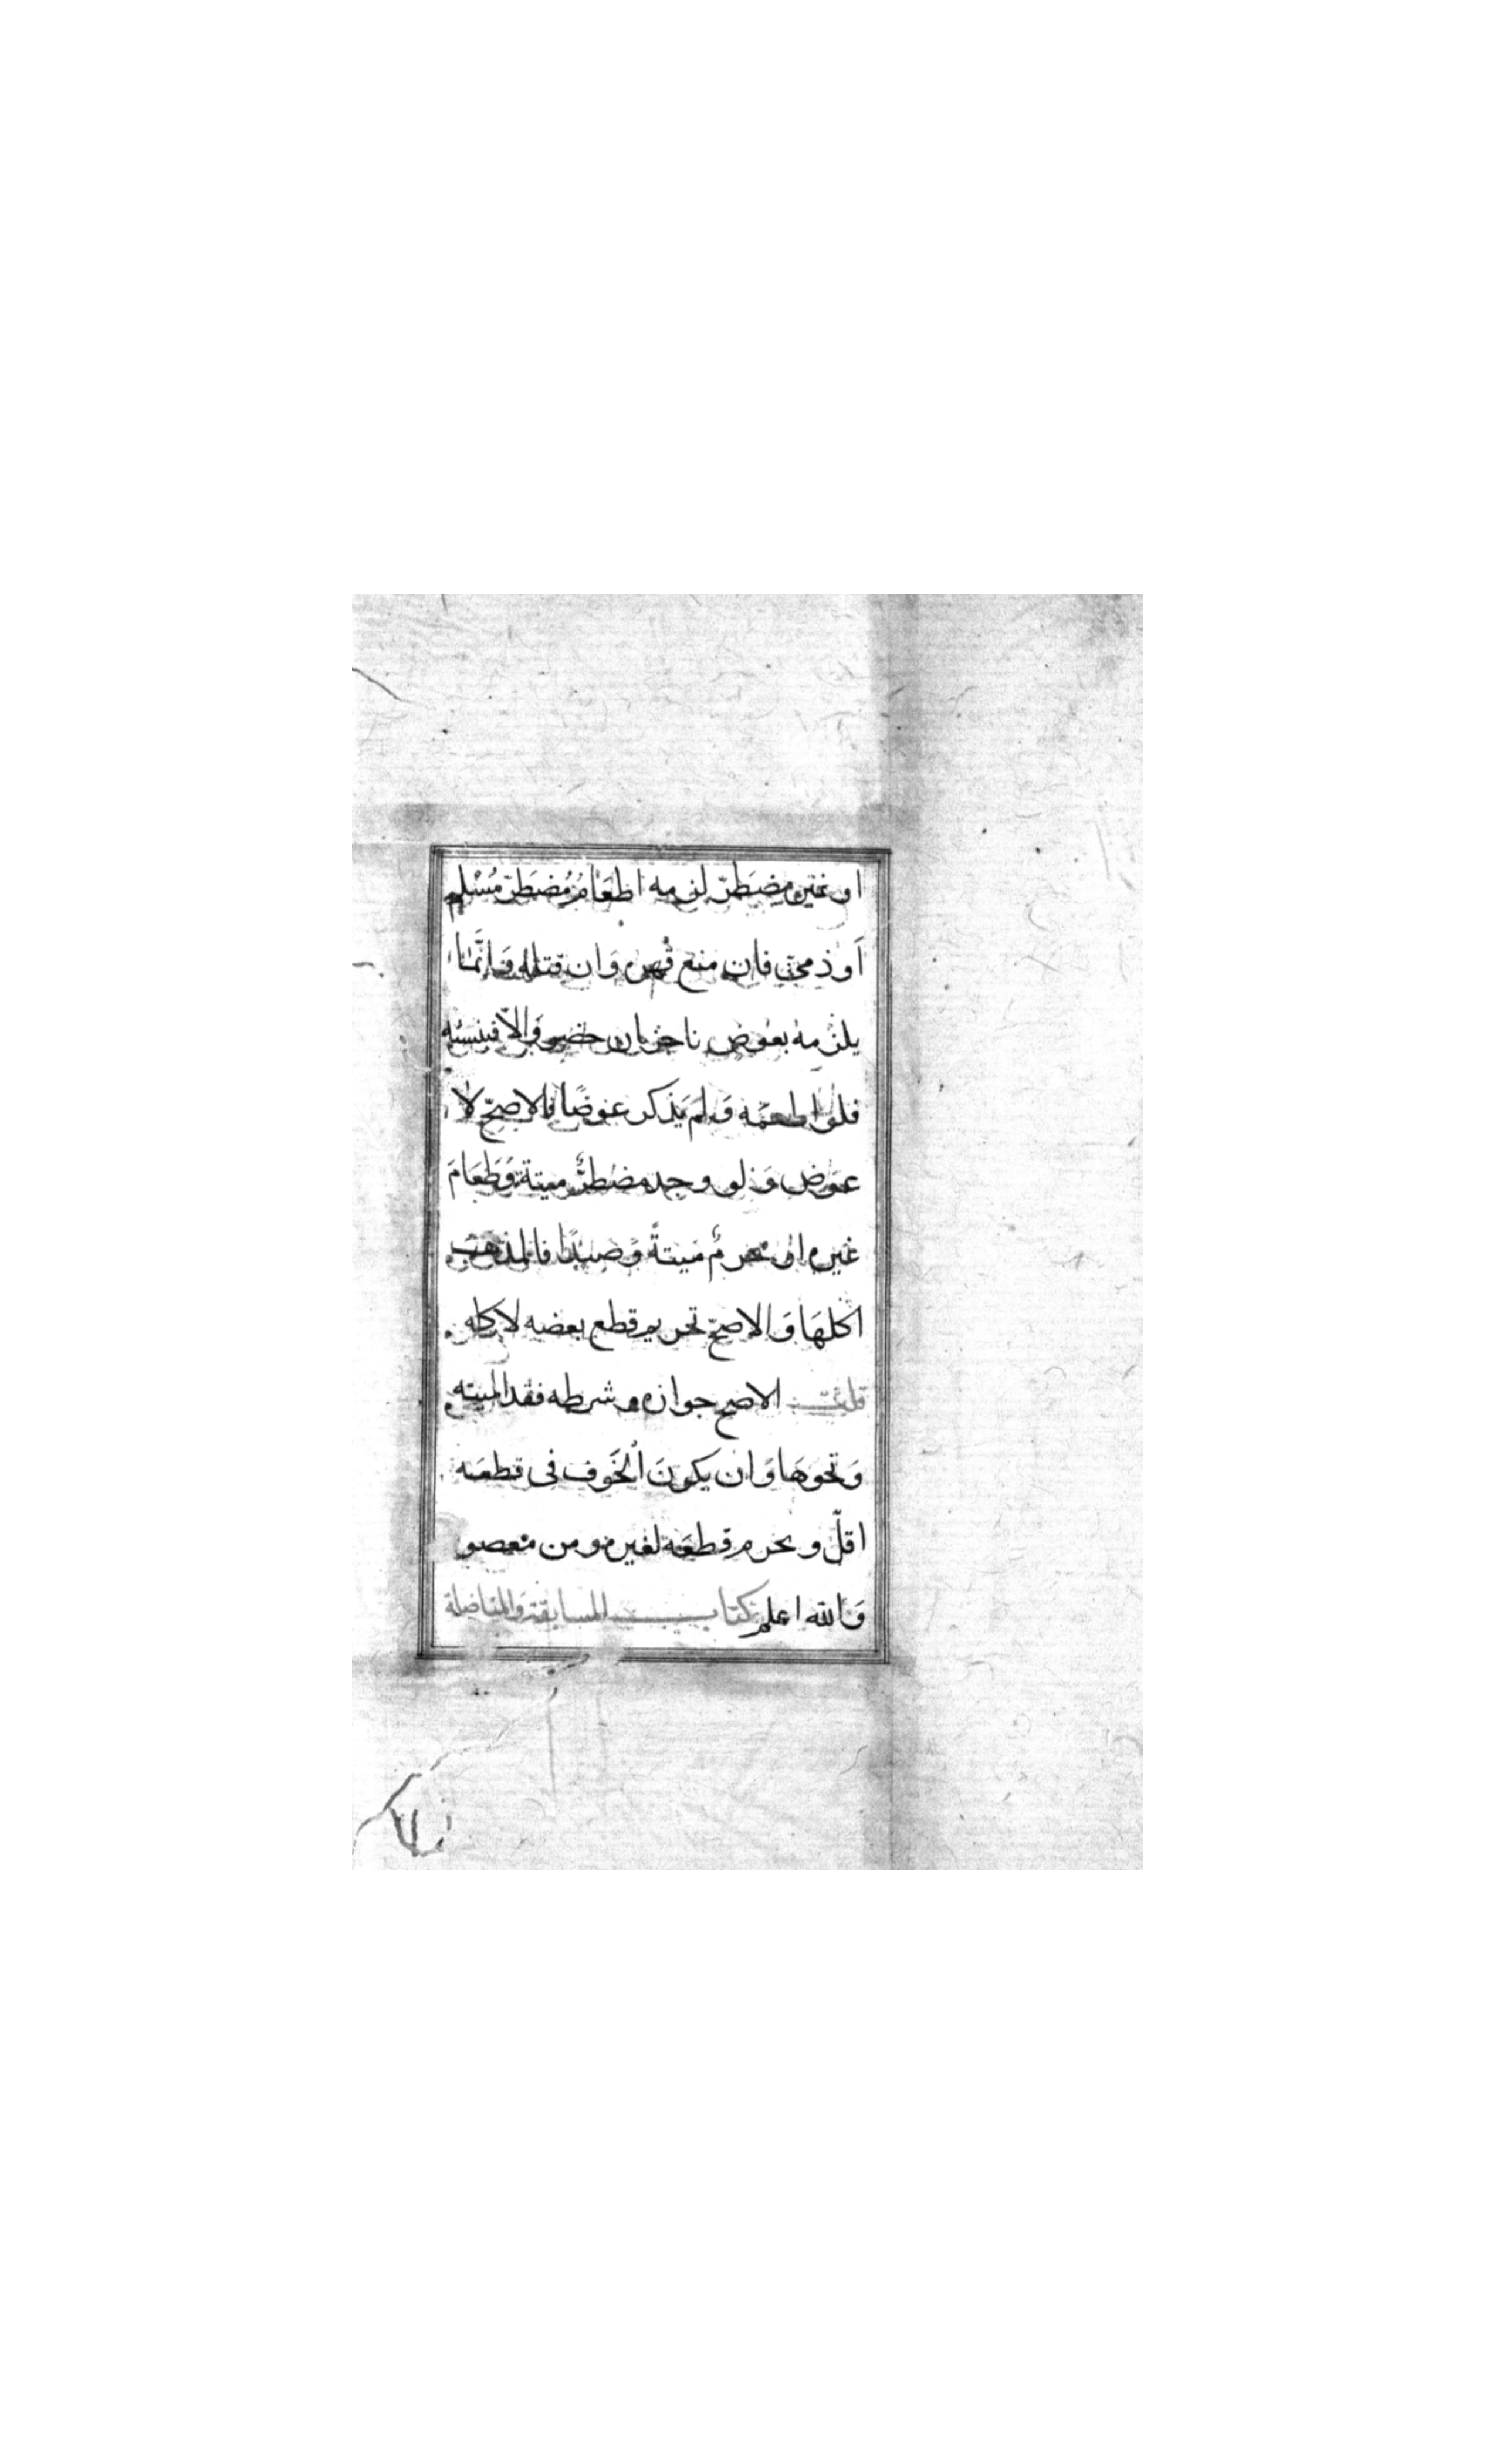 او غير مضطرّ لزمه اطعَامُ مُضطَرّ مُسْلم
اَو ذمىّ فان منع قهره وَان قتله وَانَّمَا
يلزمه بعوض ناجز ان حضر وَالاّ فبنسئه
فلو اطعمَه وَلم يَذكر عوضًا فالاصحّ لا
عوَض وَلو وجد مضطرٌّ ميتة وَطَعَامَ
غيره او محرمٌ ميتةً وَصيدًا فالمذهب
اكلهَا وَالاصحّ تحريم قطع بعضه لاكله
قلت الاصح جوازه وشرطه فقد الميته
وَنحوهَا وَان يكونَ الخَوف فى قطعَه
اقلّ ويحرم قطعَه لغيره ومن معصو
وَالله اعلم كتاب المسابقة وَالمناضلة